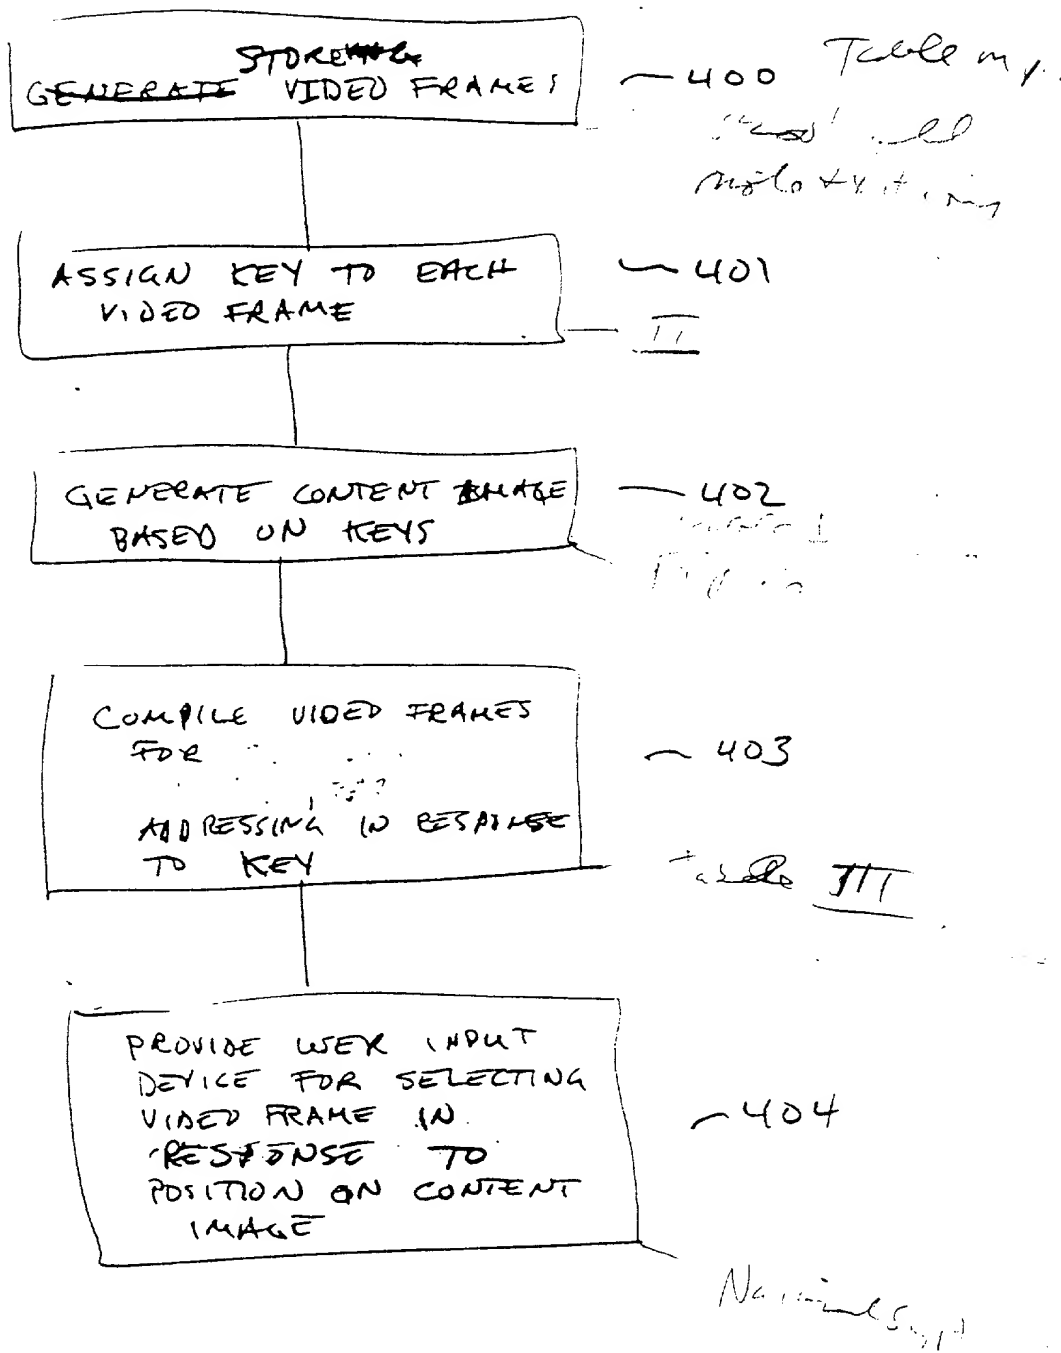 STORE
GENERATE VIDEO FRAMES
400
Table
ASSIGN KEY TO EACH
VIDEO FRAME
401
II
GENERATE CONTENT IMAGE
BASED ON KEYS
402
COMPILE VIDEO FRAMES
FOR
ADDRESSING IN RESPONSE
TO KEY
403
table III
PROVIDE USER INPUT
DEVICE FOR SELECTING
VIDEO FRAME IN
RESPONSE TO
POSITION ON CONTENT
IMAGE
404